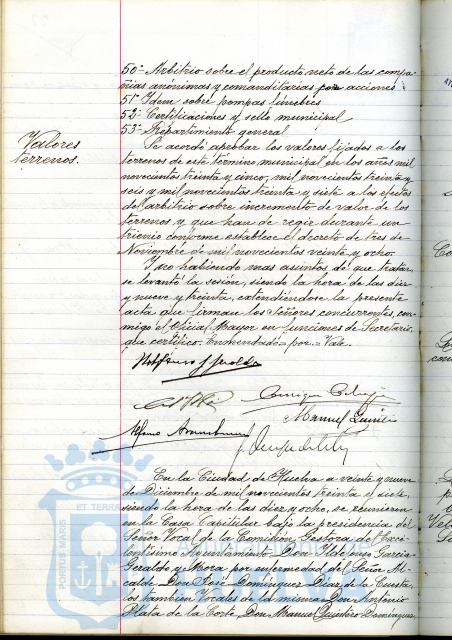 50º- Arbitrio sobre el producto neto de las compa-
ñias anónimas y comanditarias por acciones
51º Idem sobre pompas fúnebres
52º Certificaciones y sello municipal
53º Repartimiento general
Valores
terrenos.
Se acordó aprobar los valores fijados a los
terrenos de este término municipal en los años mil
novecientos treinta y cinco, mil novecientos treinta y
seis y mil novecientos treinta y siete a los efectos
del arbitrio sobre incremento de valor de los
terrenos y que han de regir durante un
trienio conforme establece el decreto de tres de
Noviembre de mil novecientos veinte y ocho.
Y no habiendo mas asuntos de que tratar,
se levantó la sesión, siendo la hora de las diez
y nueve y treinta, extendiéndose la presente
acta que firman los Señores concurrentes, con-
migo el Oficial Mayor en funciones de Secretario,
que certifico. Enmendado = por = Vale.
Ildefonso G Geraldo
Enrique
Manuel
Alfonso
En la Ciudad de Huelva a veinte y nueve
de Diciembre de mil novecientos treinta y siete,
siendo la hora de las diez y ocho, se reunieron
en la Casa Capitular bajo la presidencia del
Señor Vocal de la Comisión Gestora del Exce-
lentísimo Ayuntamiento Don Ildefonso Garcia
Geraldo y Mora por enfermedad del Señor Al-
calde Don José Domínguez Diaz de la Cuesta,
los tambien Vocales de la misma Don Antonio
Plata de la Corte, Don Manuel Quintero Domínguez,
ET TERRA
PORTUS MARIS